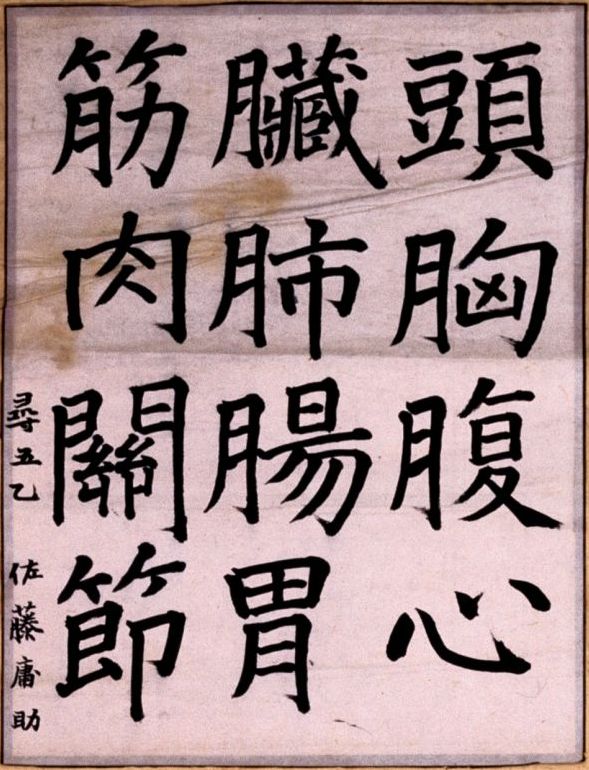 頭胸腹心
臓肺腸胃
筋肉關節
尋五乙 佐藤庸助